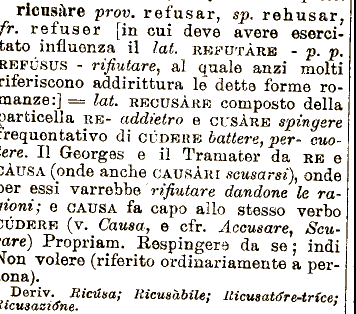 ricusàre prov. refusar, sp. rehusar,
fr. refuser [in cui deve avere eserci-
tato influenza il lat. REFUTÀRE - p. p.
REFÚSUS - rifiutare, al quale anzi molti
riferiscono addirittura le dette forme ro-
manze:] = lat. RECUSÀRE composto della
particella RE- addietro e CUSÀRE spingere
frequentativo di CÚDERE battere, per- cuo-
tere. Il Georges e il Tramater da RE e
CÀUSA (onde anche CAUSÀRI scusarsi), onde
per essi varrebbe rifiutare dandone le ra-
gioni; e CAUSA fa capo allo stesso verbo
CÚDERE (v. Causa, e cfr. Accusare, Scu-
sare) Propriam. Respingere da se; indi
Non volere (riferito ordinariamente a per-
sona).
Deriv. Ricúsa; Ricusàbile; Ricusatóre-tríce;
Ricusazióne.